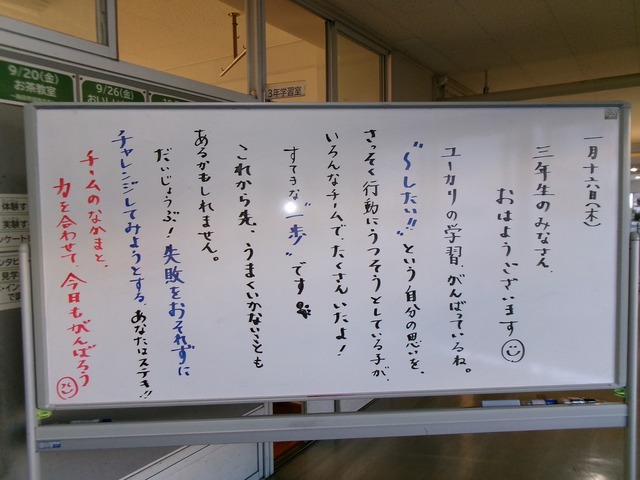 一月十六日(木)
三年生のみなさん、
おはようございます
ユーカリの学習、がんばっているね。
"〜したい!!"という自分の思いを、
さっそく行動にうつそうとしている子が、
いろんなチームで、たくさんいたよ!
すてきな"一歩"です
これから先、うまくいかないことも
あるかもしれません。
だいじょうぶ!失敗をおそれずに
チャレンジしてみようとする、あなたはステキ!!
チームのなかまと、
力を合わせて、今日もがんばろう
9/20(金)
お茶教室
9/26(金)
3年学習室